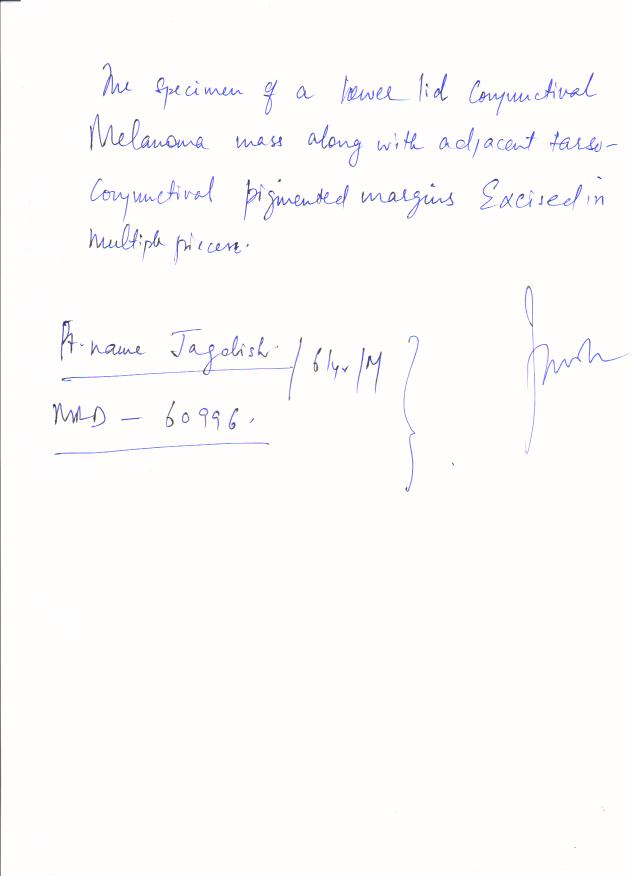 The specimen of a lower lid Conjunctival
Melanoma mass along with adjacent tarso-
Conjunctival pigmented margins Excised in
multiple pieces.
Pt. name Jagdish / 61yr/M
MRD - 60996.